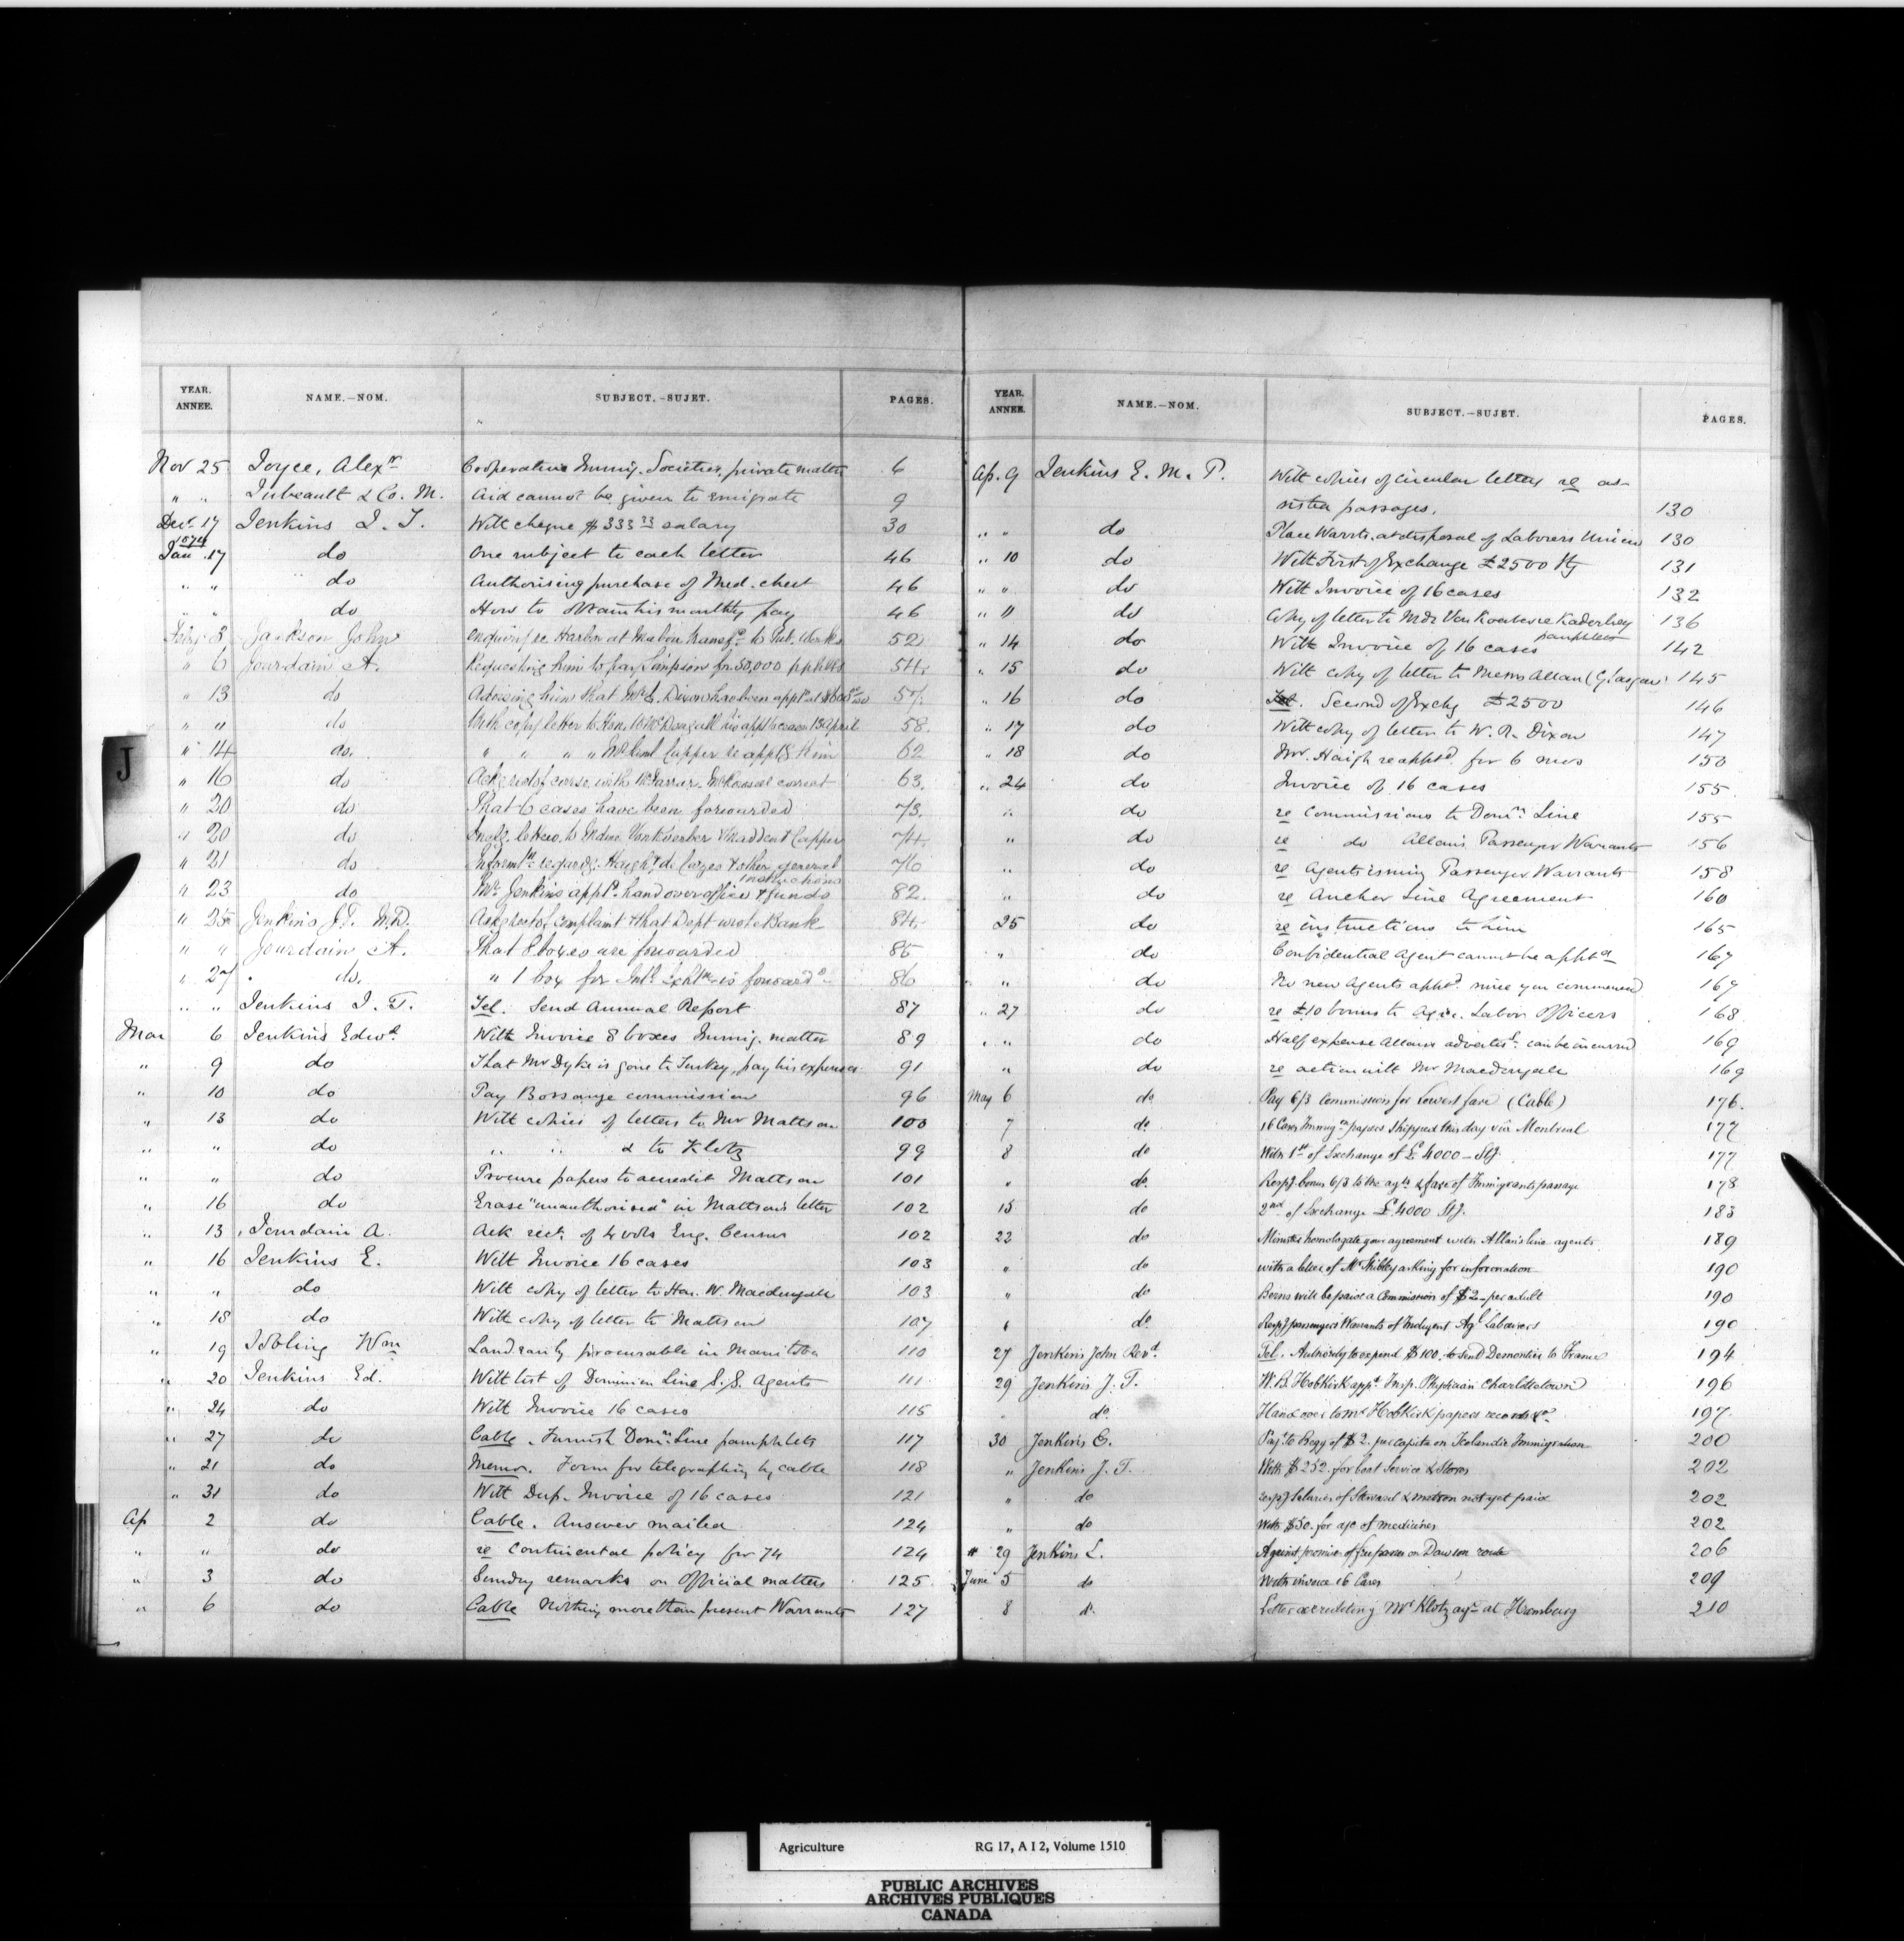 YEAR. ANNEE. NAME.-NOM. SUBJECT.-SUJET. PAGES.
Nov 25 Joyce, Alexr Cooperative Immig. Societies, private matter 6
" " Jubeault & Co. M. Aid cannot be given to emigrate 9
Dec. 17 Jenkins J. T. With cheque $333 33 salary 30
1874
Jan 17 do One subject to each letter 46
" " do Authorising purchase of Med. chest 46
" " do How to obtain his monthly pay 46
Feby 3 Jackson John Harbor at Mabou to Pub. Works 52
" 6 Jourdain A. Requesting him to pay Simpson for 50,000 pphlets 54
" 13 do Advising him that Mr Dixon has been appt at 57
" " do With copy letter to Hon. W McDougall his appt 13 April 58
" 14 do. " " " " 62
" 16 do 63
" 20 do That 6 cases have been forwarded 73
" 20 do 74
" 21 do & other general instructions 76
" 23 do Mr Jenkins appt. hand over office & funds 82
" 25 Jenkins J.T. M.D. complaint & that Dept wrote Bank 84
" " Jourdain A. That 8 boxes are forwarded 85
" 27 do. " 1 box for is forwarded 86
" " Jenkins J. T. Tel. Send Annual Report 87
Mar 6 Jenkins Edwd With Invoice 8 boxes Immig. matter 89
" 9 do That Mr Dyke is gone to Turkey, pay his expenses 91
" 10 do Pay Bossange commission 96
" 13 do With copies of letters to Mr Mattson 100
" " do " " & to Klotz 99
" " do Procure papers to accredit Mattson 101
" 16 do Erase "unauthorised" in Mattson's letter 102
" 13 Jourdain A. Ack rect. of 4 vols Eng. Census 102
" 16 Jenkins E. With Invoice 16 cases 103
" " do With copy of letter to Hon. W. Macdougall 103
" 18 do With copy of letter to Mattson 107
" 19 Wm Land easily procurable in Manitoba 110
" 20 Jenkins Ed. With list of Dominion Line S.S. Agents 111
" 24 do With Invoice 16 cases 115
" 27 do Cable. Furnish Domn Line pamphlets 117
" 21 do Memo. Form for telegraphing by cable 118
" 31 do With Dup. Invoice of 16 cases 121
Ap 2 do Cable. Answer mailed 124
" " do re Continental policy for 74 124
" 3 do Sundry remarks on Official matters 125
" 6 do Cable Nothing more than present Warrants 127
J
YEAR. ANNEE. NAME.-NOM. SUBJECT.-SUJET. PAGES.
Ap. 9 Jenkins E. M. P. With copies of circular letters re as-
sisted passages. 130
" " do Place Warrts. at disposal of Laborers Union 130
" 10 do With First of Exchange £2500 Stg 131
" " do With Invoice of 16 cases 132
" 11 do Copy of letter to Mdr Van 136
" 14 do With Invoice of 16 cases pamphlets 142
" 15 do With copy of letter to Messrs Allan (Glasgow) 145
" 16 do Second of Exchg £2500 146
" 17 do With copy of letter to W. R. Dixon 147
" 18 do Mr. Haigh reapptd. for 6 mos 150
" 24 do Invoice of 16 cases 155
" do re Commissions to Domn Line 155
" do re do Allans Passenger Warrants 156
" do re Agents issuing Passenger Warrants 158
" do re Anchor Line Agreement 160
25 do re instructions to him 165
" do Confidential Agent cannot be apptd 167
" " do No new Agents apptd. since you commenced 167
" 27 do re £10 bonus to Agri. Labor Officers 168
" " do Half expense Allans advertist. can be incurred 169
" do re action with Mr Macdougall 169
May 6 do Pay 6/3 Commission for lowest fare (Cable) 176.
7 do 16 Cases Immign papers shipped this day via Montreal 177
8 do With 1st of Exchange of £4000 - Stg. 177
" do Respg. bonus 6/3 to the agts & fare of Immigrants passage 178
15 do 2nd of Exchange £4000 Stg. 183
22 do Minister homologate your agreement with Allan's line agents 189
" do with a letter of Mr asking for information 190
" do Berns will be paid a Commission of $2 - per adult 190
" do Respg passengers Warrants of Indigent Agl Laborers 190
27 Jenkins John Revd. Tel. Authority to expend $100. to send Demontier to France 194
29 Jenkins J. T. W.B. Hobkirk appt. Insp. Physician Charlottetown 196
" do Hand over to Mr Hobkirk papers records &c 197
30 Jenkins E. Payt. to Begg of $2. per capita on Icelandic Immigration 200
" Jenkins J. T. With $252. for boat service & Stores 202
" do respg Salaries of Steward & matron not yet paid 202
" do With $50. for a/c of medicines 202
" 29 Jenkins E. Against promise of free passes on Dawson route 206
June 5 do With invoice 16 Cases 209
8 do Letter accrediting Mr Klotz agt at Hamburg 210
Agriculture RG 17, A I 2, Volume 1510
PUBLIC ARCHIVES
ARCHIVES PUBLIQUES
CANADA